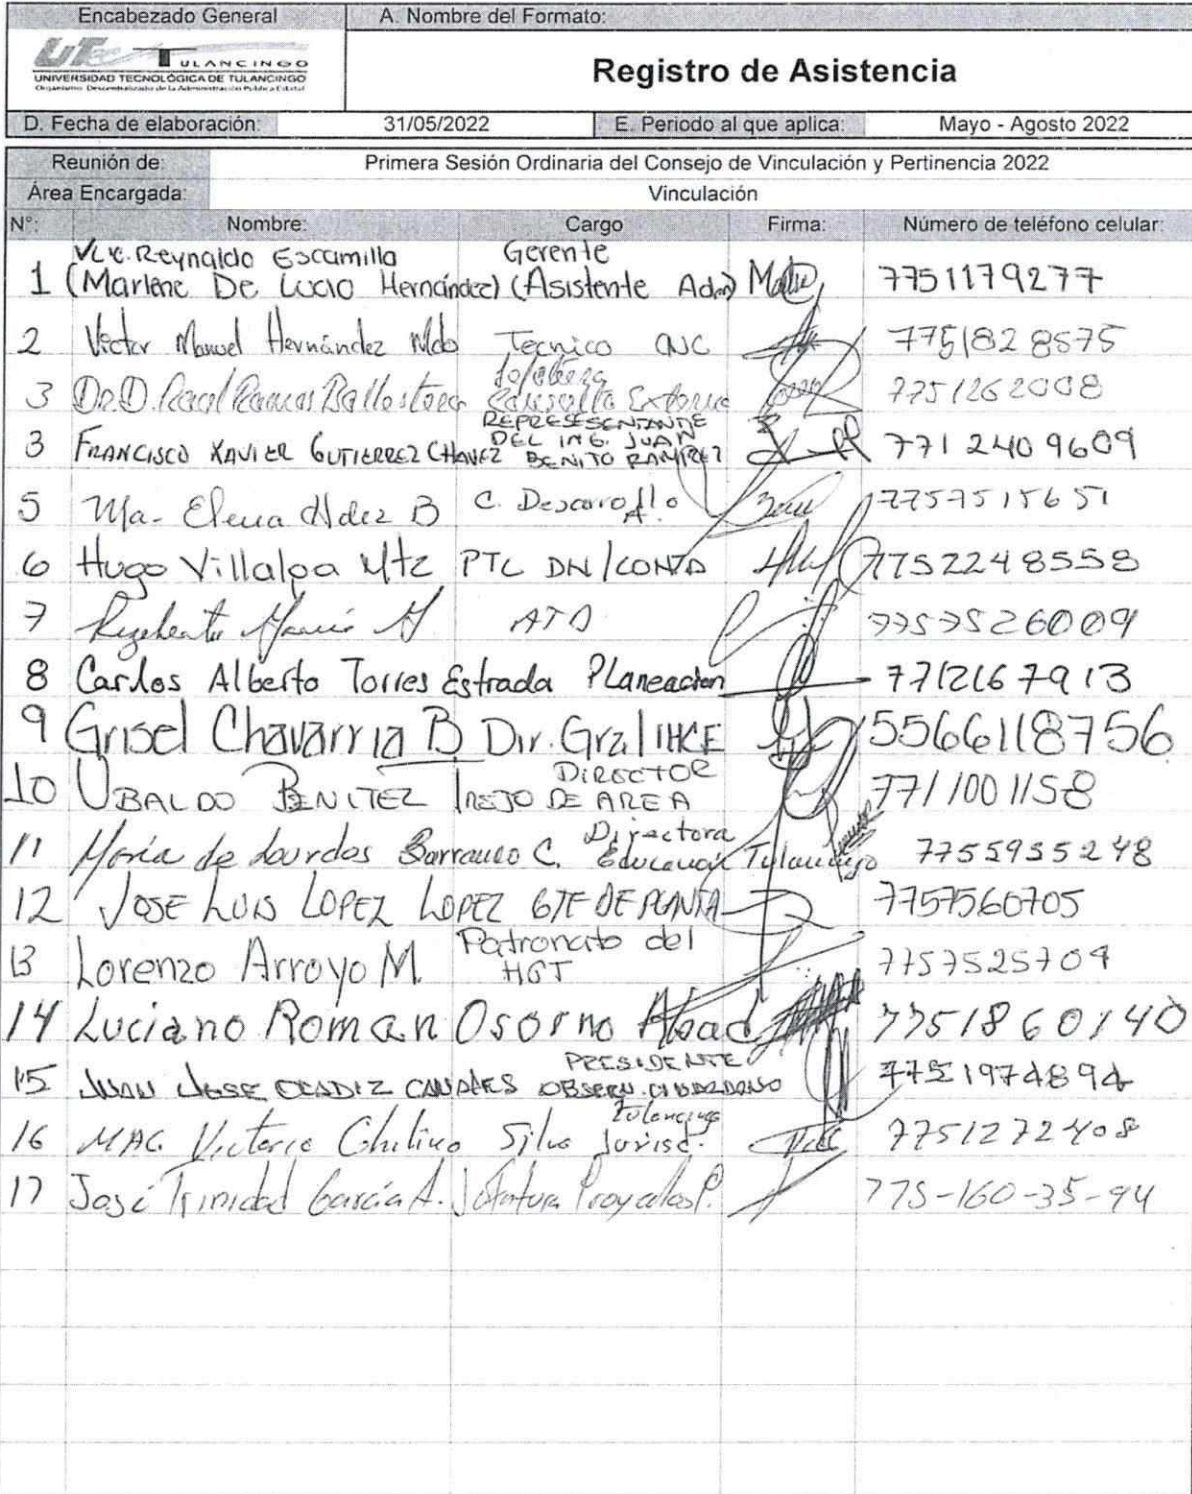 Encabezado General
A. Nombre del Formato:
UTec TULANCINGO
UNIVERSIDAD TECNOLÓGICA DE TULANCINGO
Organismo Descentralizado de la Administración Pública Estatal
Registro de Asistencia
D. Fecha de elaboración: 31/05/2022 E. Periodo al que aplica: Mayo - Agosto 2022
Reunión de: Primera Sesión Ordinaria del Consejo de Vinculación y Pertinencia 2022
Área Encargada: Vinculación
N°: Nombre: Cargo Firma: Número de teléfono celular:
Reynaldo Escamilla Gerente
1 (Marlene De Lucio Hernández) (Asistente Adm) 7751179277
2 Victor Manuel Hernández Mdo Tecnico 7751828575
3 Raul Ramos Externa 7751262008
REPRESESENTANTE
3 FRANCISCO XAVIER GUTIERREZ CHAVEZ DEL ING. JUAN BENITO RAMIREZ 771 240 9609
5 Ma. Elena Hdez B C. Desarrollo 7757515651
6 Hugo Villalpa Mtz PTC DN/CONTA 7752248558
7 7757526009
8 Carlos Alberto Torres Estrada Planeacion 7712167913
9 Grisel Chavarria B Dir. Gral IHCE 5566118756
DIRECTOR
10 UBALDO BENITEZ DE AREA 771 100 1158
Directora
11 María de Lourdes Barranco C. Educación Tulancingo 7755955248
12 JOSE LUIS LOPEZ LOPEZ GTE DE PLANTA 7757560705
Patronato del
13 Lorenzo Arroyo M. HGT 7757525709
14 Luciano Roman Osorno Abad 7751860140
PRESIDENTE
15 JUAN JOSE CANALES OBSERV. CIUDADANO 7751974894
Tulancingo
16 Victoria Silva Jurisd. 7751272408
17 José Trinidad García A. Jefatura 775-160-35-94